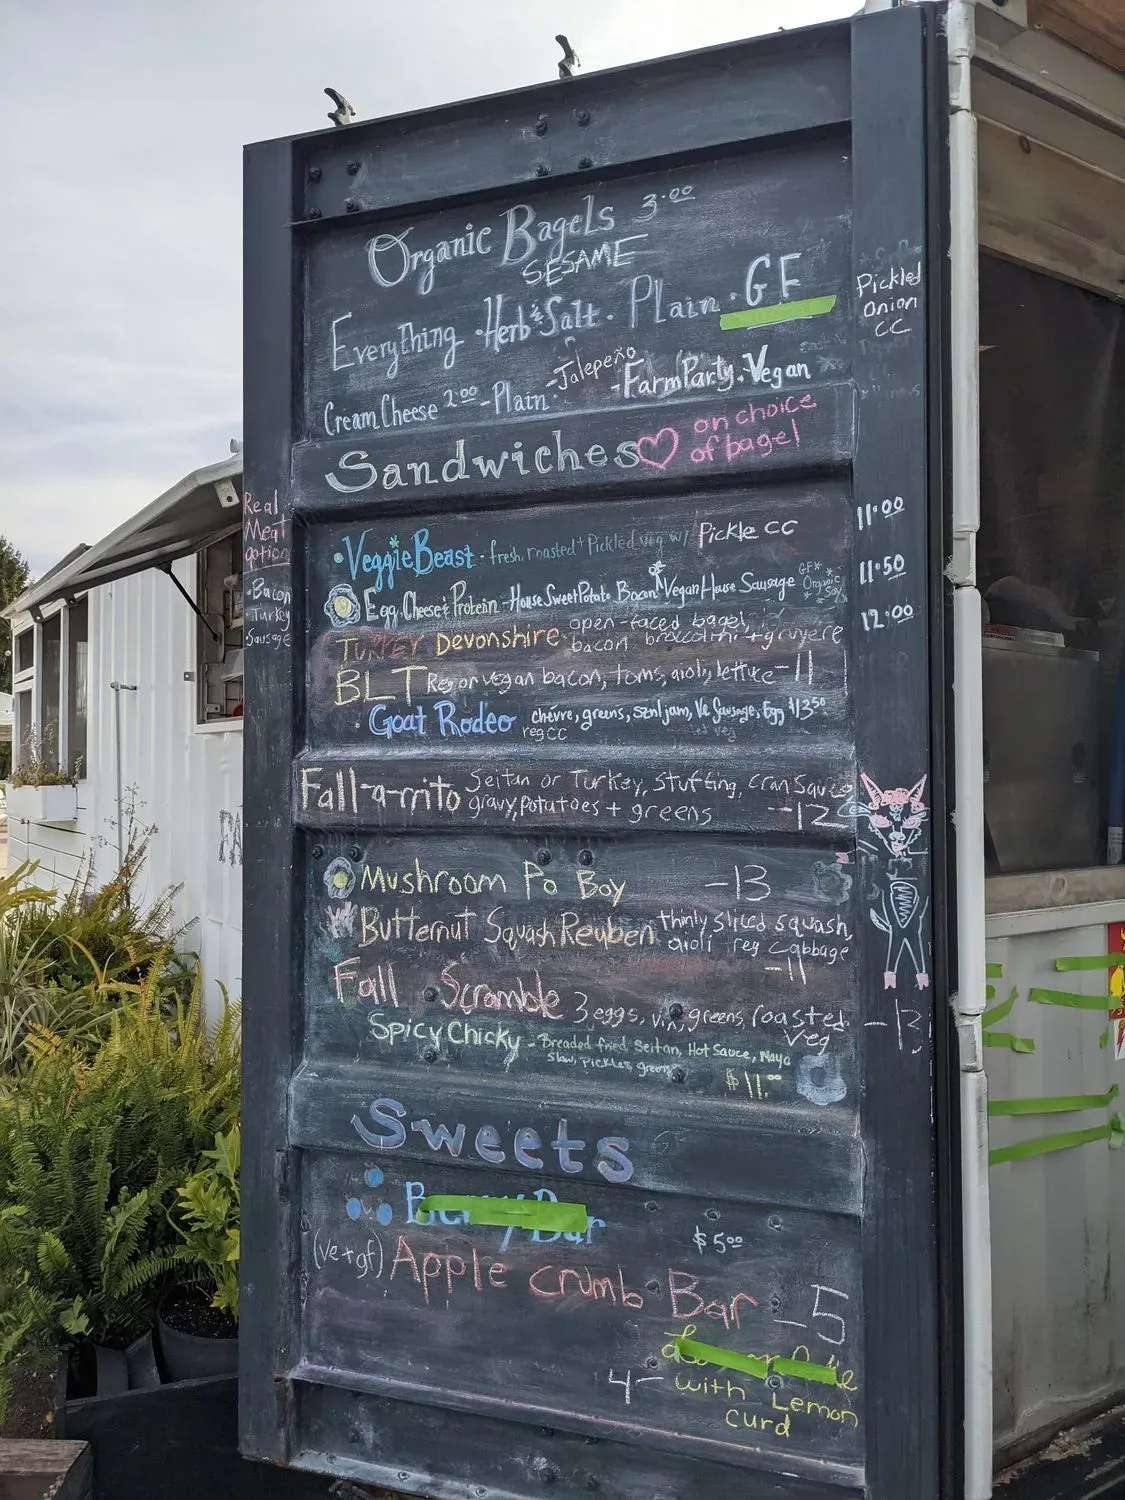 Organic Bagels 3.00
SESAME
Everything · Herb & Salt · Plain · GF
Pickled
Onion
CC
Cream Cheese 2.00 - Plain - Jalepeño - FarmParty · Vegan
Sandwiches on choice
of bagel
Real
Meat
option
- Bacon
- Turkey
- Sausage
· VeggieBeast - fresh, roasted + Pickled veg w/ Pickle CC 11.00
Egg, Cheese & Protein - House Sweet Potato Bacon Vegan House Sausage GF Organic Soy 11.50
TURKEY Devonshire open-faced bagel, 12.00
bacon broccolini + gruyere
BLT Reg or vegan bacon, toms, aioli, lettuce - 11
Goat Rodeo chévre, greens, sznl jam, Ve Sausage, Egg $13.50
reg CC
Fall-a-rrito Seitan or Turkey, Stuffing, cran Sauce
gravy, potatoes + greens - 12
Mushroom Po Boy - 13
Butternut Squash Reuben thinly sliced squash,
aioli reg cabbage
- 11
Fall Scramble 3 eggs, vin, greens, roasted
veg - 13
Spicy Chicky - Breaded fried Seitan, Hot Sauce, Mayo
Slaw, pickles greens
$11.00
Sweets
Bar
$5.00
(ve+gf) Apple crumb Bar - 5
4 - with Lemon
curd